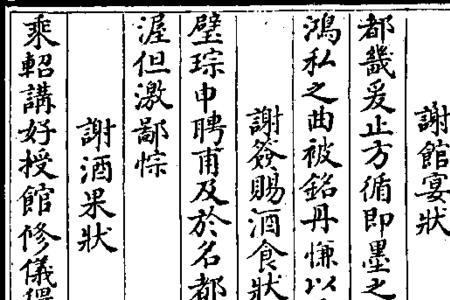 謝館宴狀
都畿爰止方循即墨之
鴻私之曲被銘丹慊以
謝簽賜酒食狀
璧琮申聘甫及於名都
渥但激鄙悰
謝酒果狀
乘軺講好授館修儀